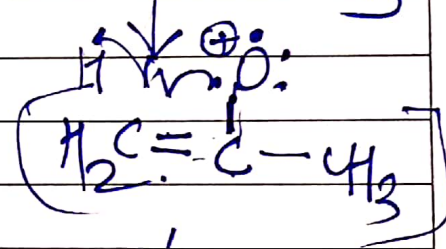 H ⊕ O:
H₂C = C — CH₃